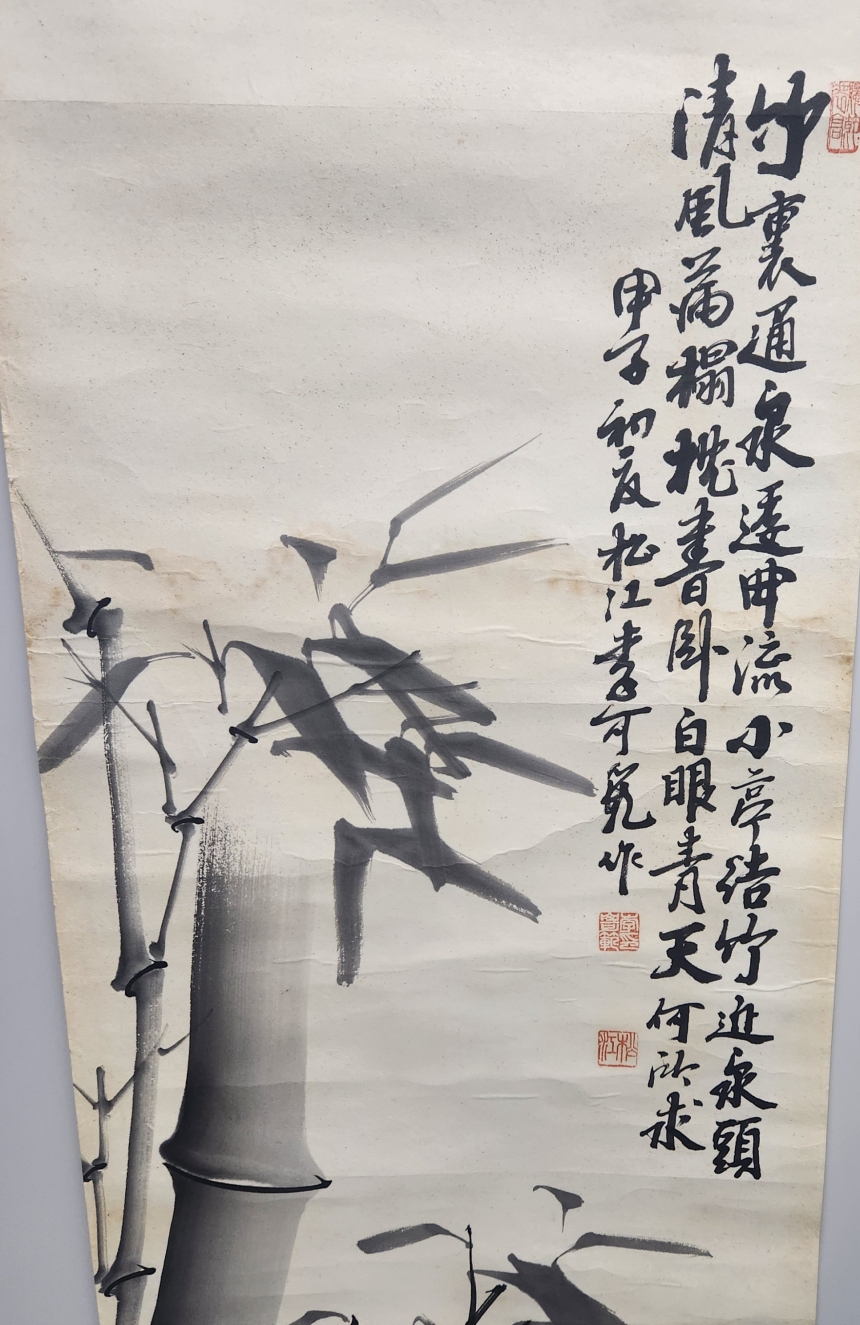 竹裏通泉逶曲流小亭结竹近泉頭
清風滿榻攤書卧白眼青天何所求
甲子初夏松江李可範作
松江